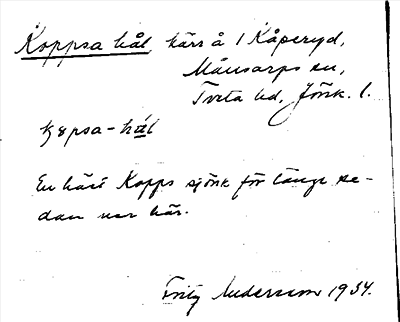 Koppsa hål, kärr å 1 Kåperyd,
Månsarps sn,
Tveta hd, Jönk. l.
kɔpsa-hål
En häst Kopps sjönk för länge se-
dan ner här.
Fritz Andersson 1934.